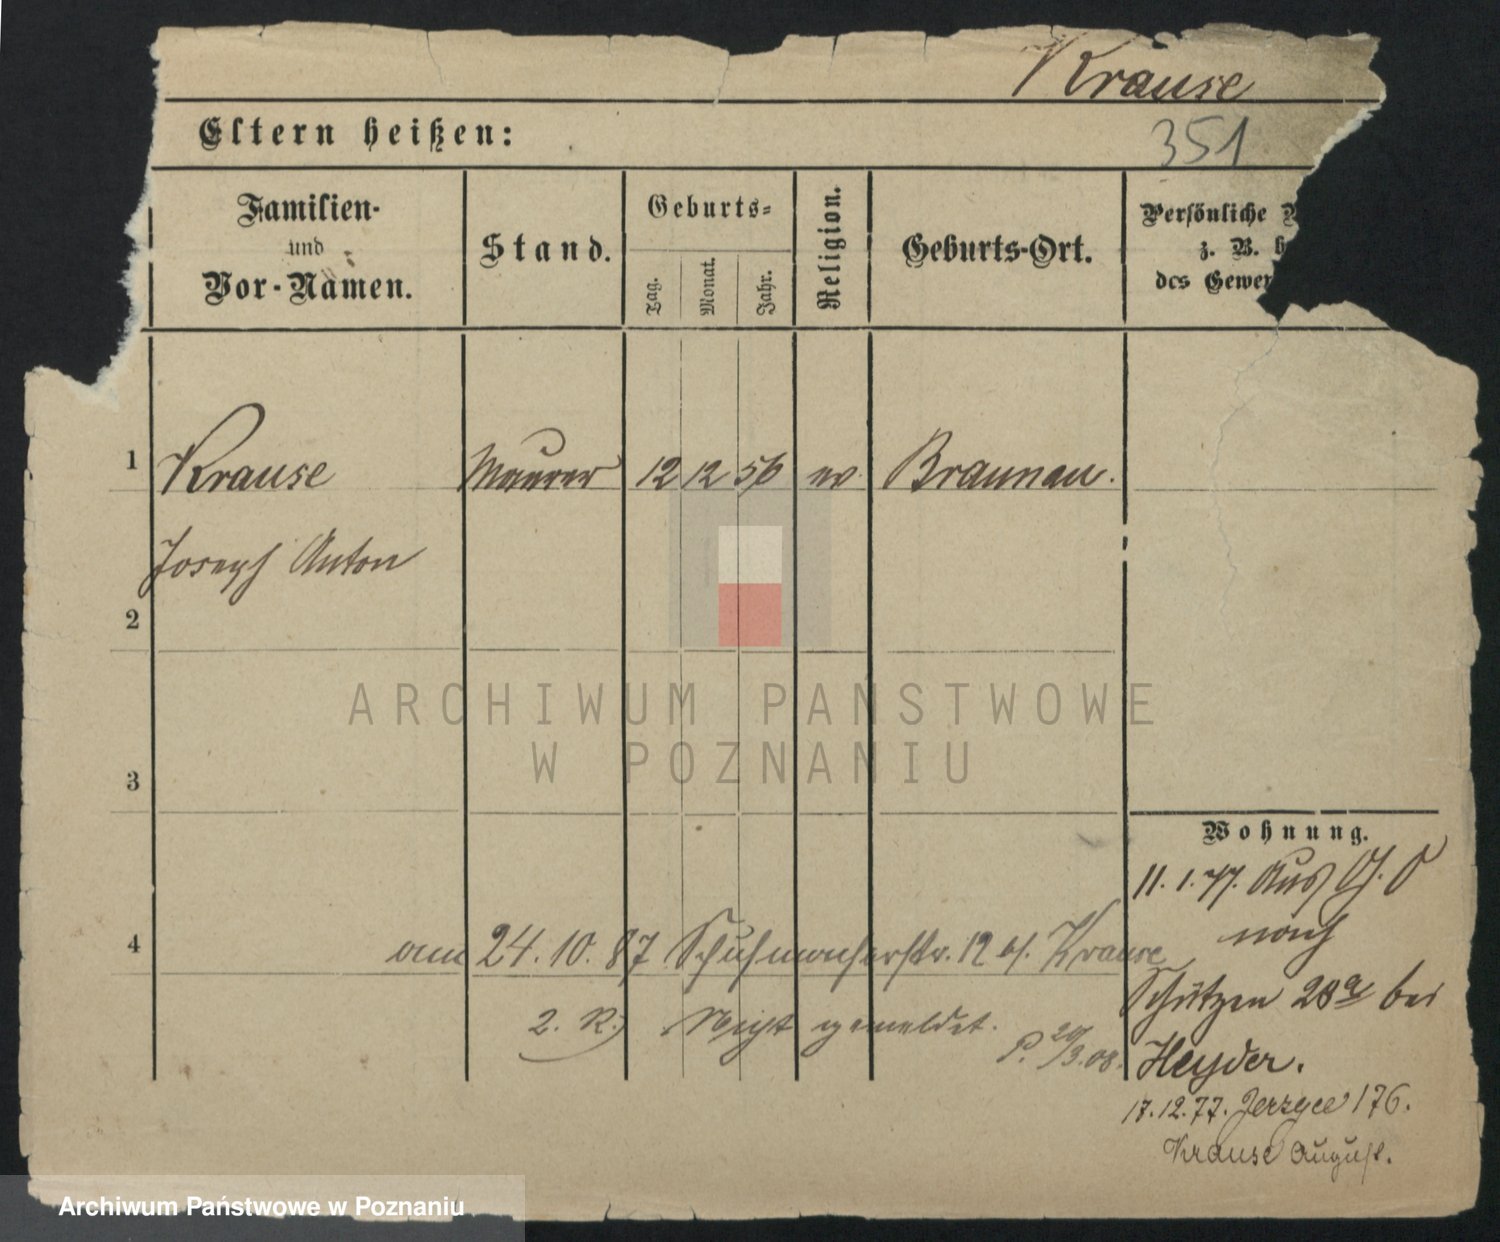 Krause
Eltern heißen:
351
Familien-
und
Vor-Namen.
Stand.
Geburts-
Tag.
Monat.
Jahr.
Religion.
Geburts-Ort.
Persönliche
z. B.
des Gewer
1
Krause
Maurer
12 12 56
ev.
Braunau.
Joseph Anton
2
ARCHIWUM PAŃSTWOWE
W POZNANIU
3
Wohnung.
11. 1. 77. Aus
nach
4
am 24. 10. 87 Schuhmacherstr. 12 b/. Krause
Schützen 28a bei
2. R. Nicht gemeldet.
P. 20/3. 08.
Heyder.
17. 12. 77. Jerzyce 176.
Krause August.
Archiwum Państwowe w Poznaniu